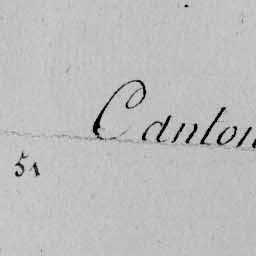 Canton
51